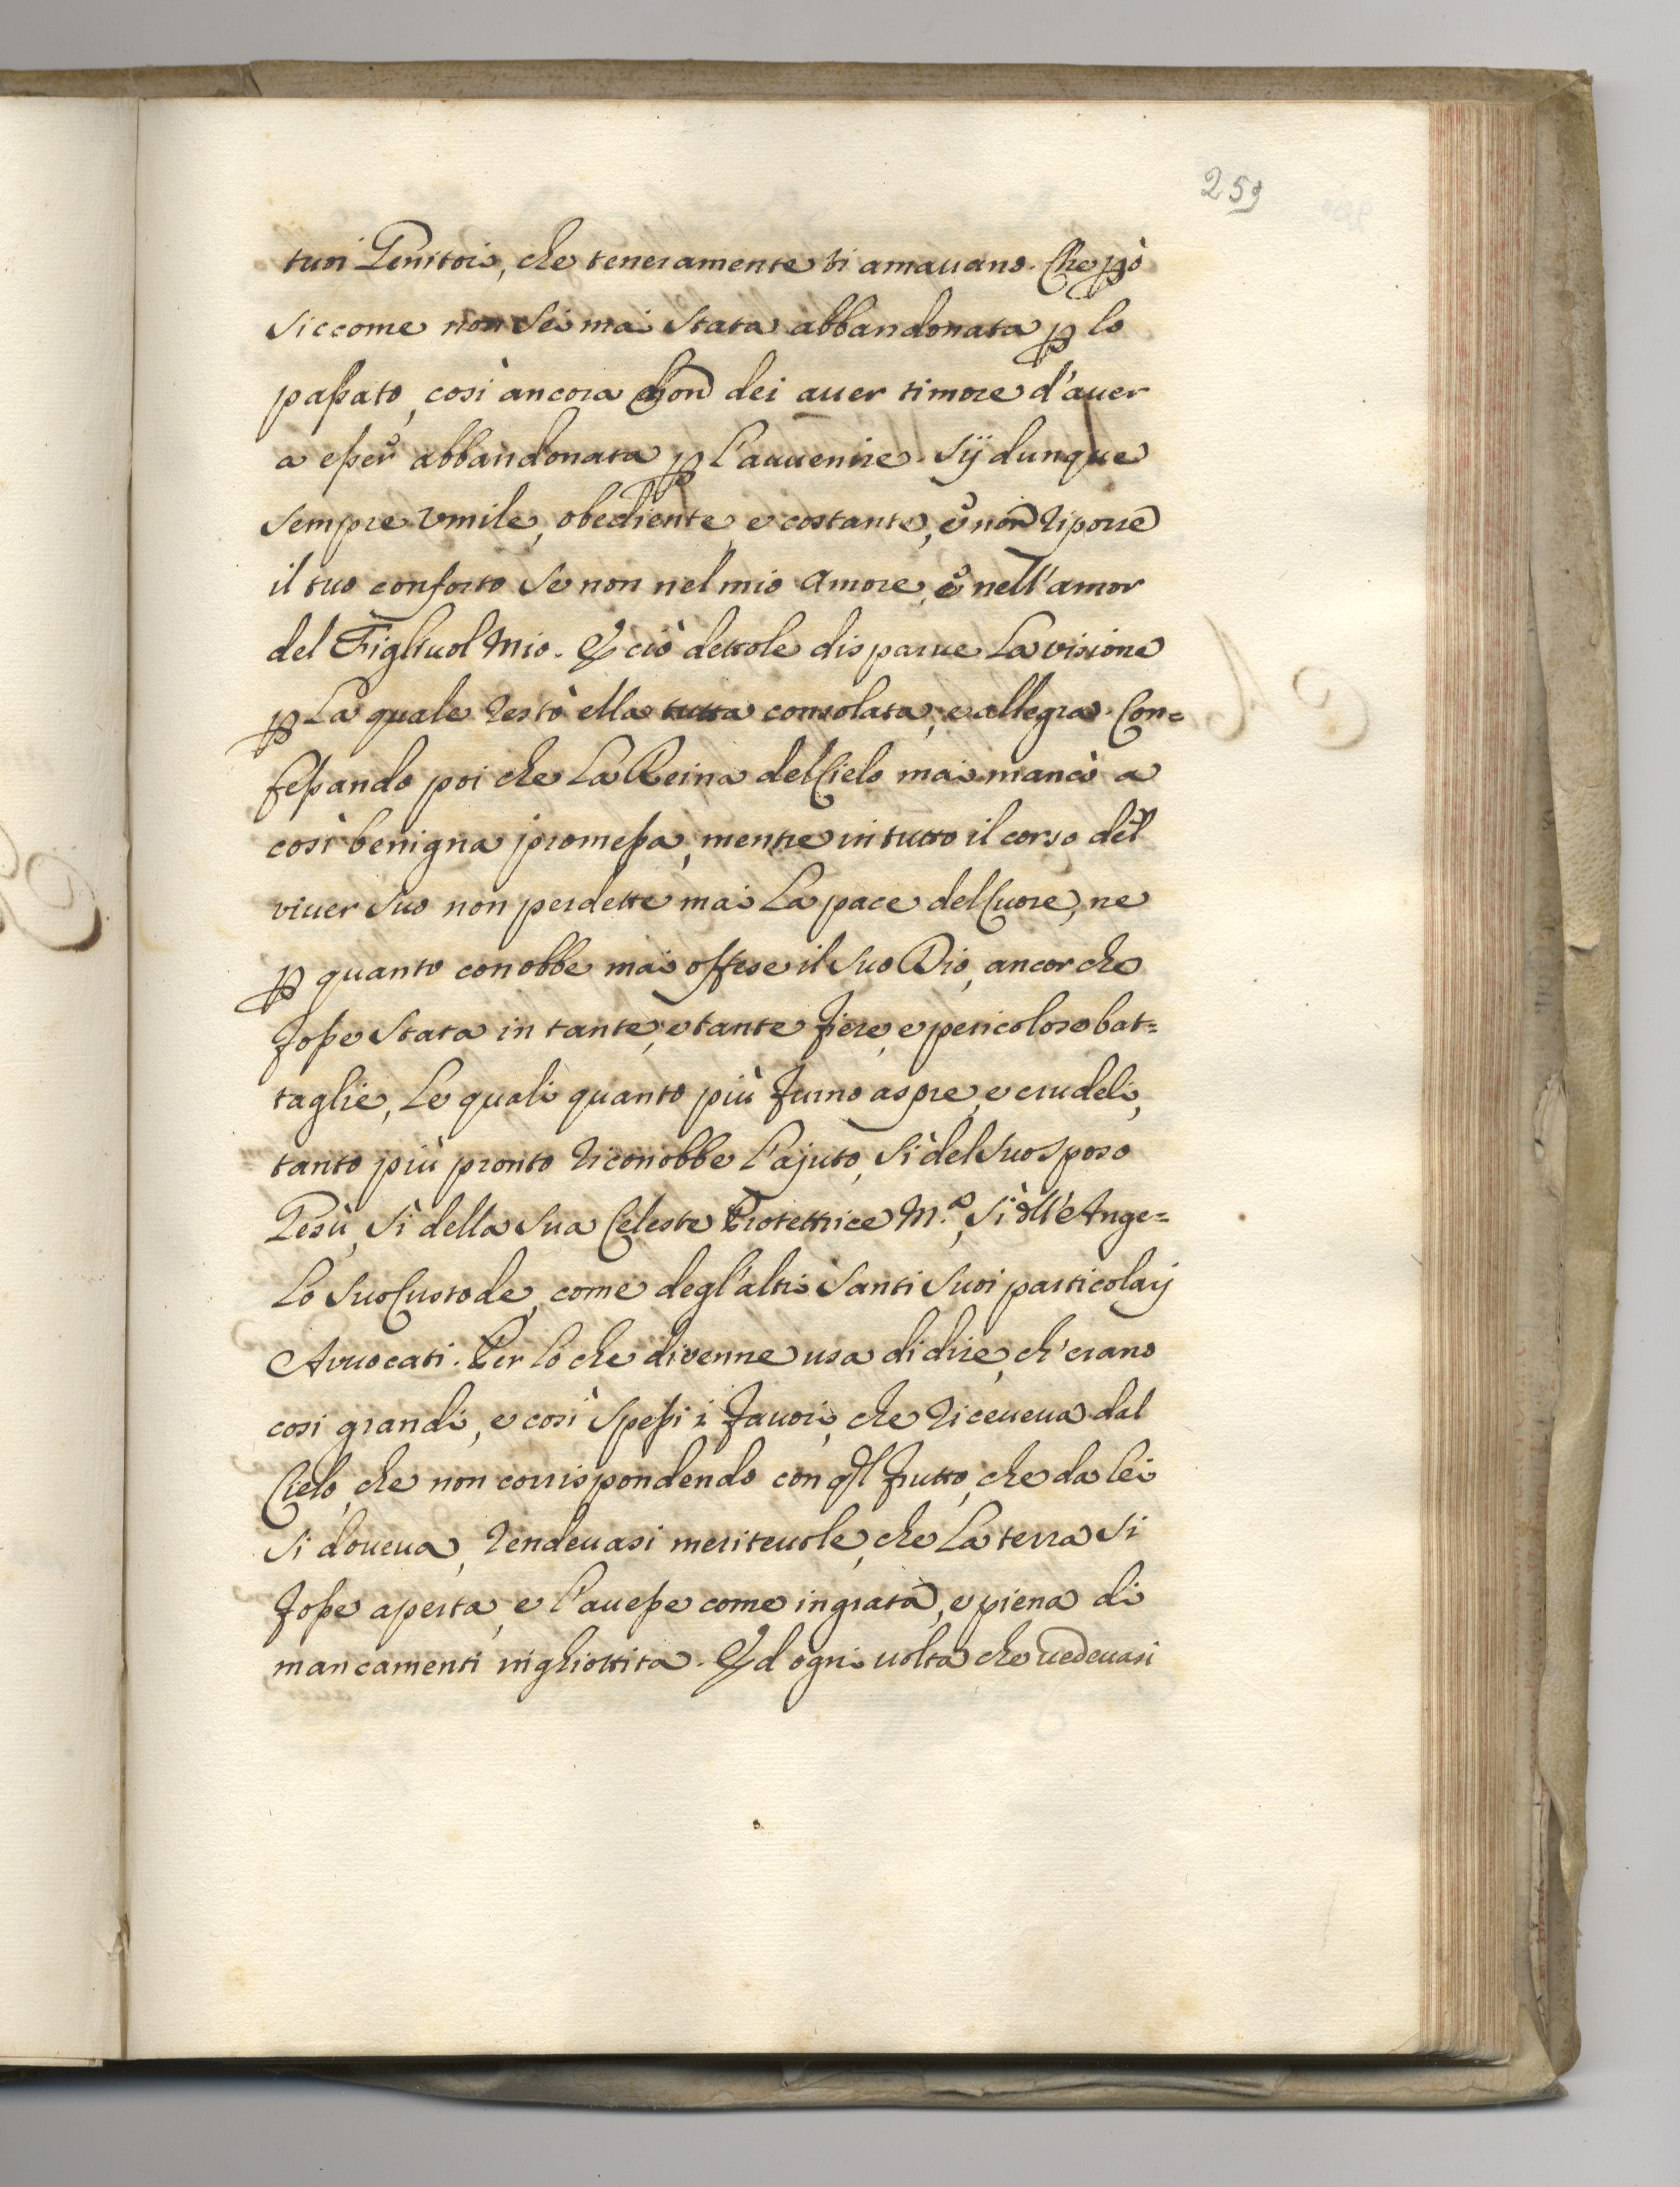 259
tuoi Genitori, che teneramente ti amauano. Che ꝑò
siccome non sei mai stata abbandonata ꝑ lo
paßato, così ancora non dei auer timore d'auer
a eßer abbandonata ꝑ l'auuenire. Sÿ dunque
sempre vmile, obediente, e costante, e non riporre
il tuo conforto se non nel mio Amore, e nell'amor
del Figliuol Mio. E ciò dettole disparue La visione
ꝑ La quale restò ella tutta consolata, e allegra. Con=
feßando poi che La Reina del Cielo mai mancò a
così benigna promeßa, mentre in tutto il corso del
viuer suo non perdette mai La pace del Cuore, ne
ꝑ quanto conobbe mai offese il suo Dio, ancor che
foße stata in tante, e tante fiere, e pericolose bat=
taglie, Le quali quanto più furno aspre, e crudeli,
tanto più pronto riconobbe l'ajuto, sì del suo sposo
Gesù, sì della sua Celeste Protettrice M.ª, sì dll'Ange=
lo suo Custode, come degl'altri Santi suoi particolarj
Avuocati. Per lo che divenne usa di dire, ch'erano
così grandi, e così speßi i fauori, che riceueua dal
Cielo, che non corrispondendo con ql frutto, che da lei
si doueua, rendeuasi meriteuole, che La terra si
foße aperta, e l'aueße come ingrata, e piena di
mancamenti inghiottita. Ed ogni uolta che uedeuasi